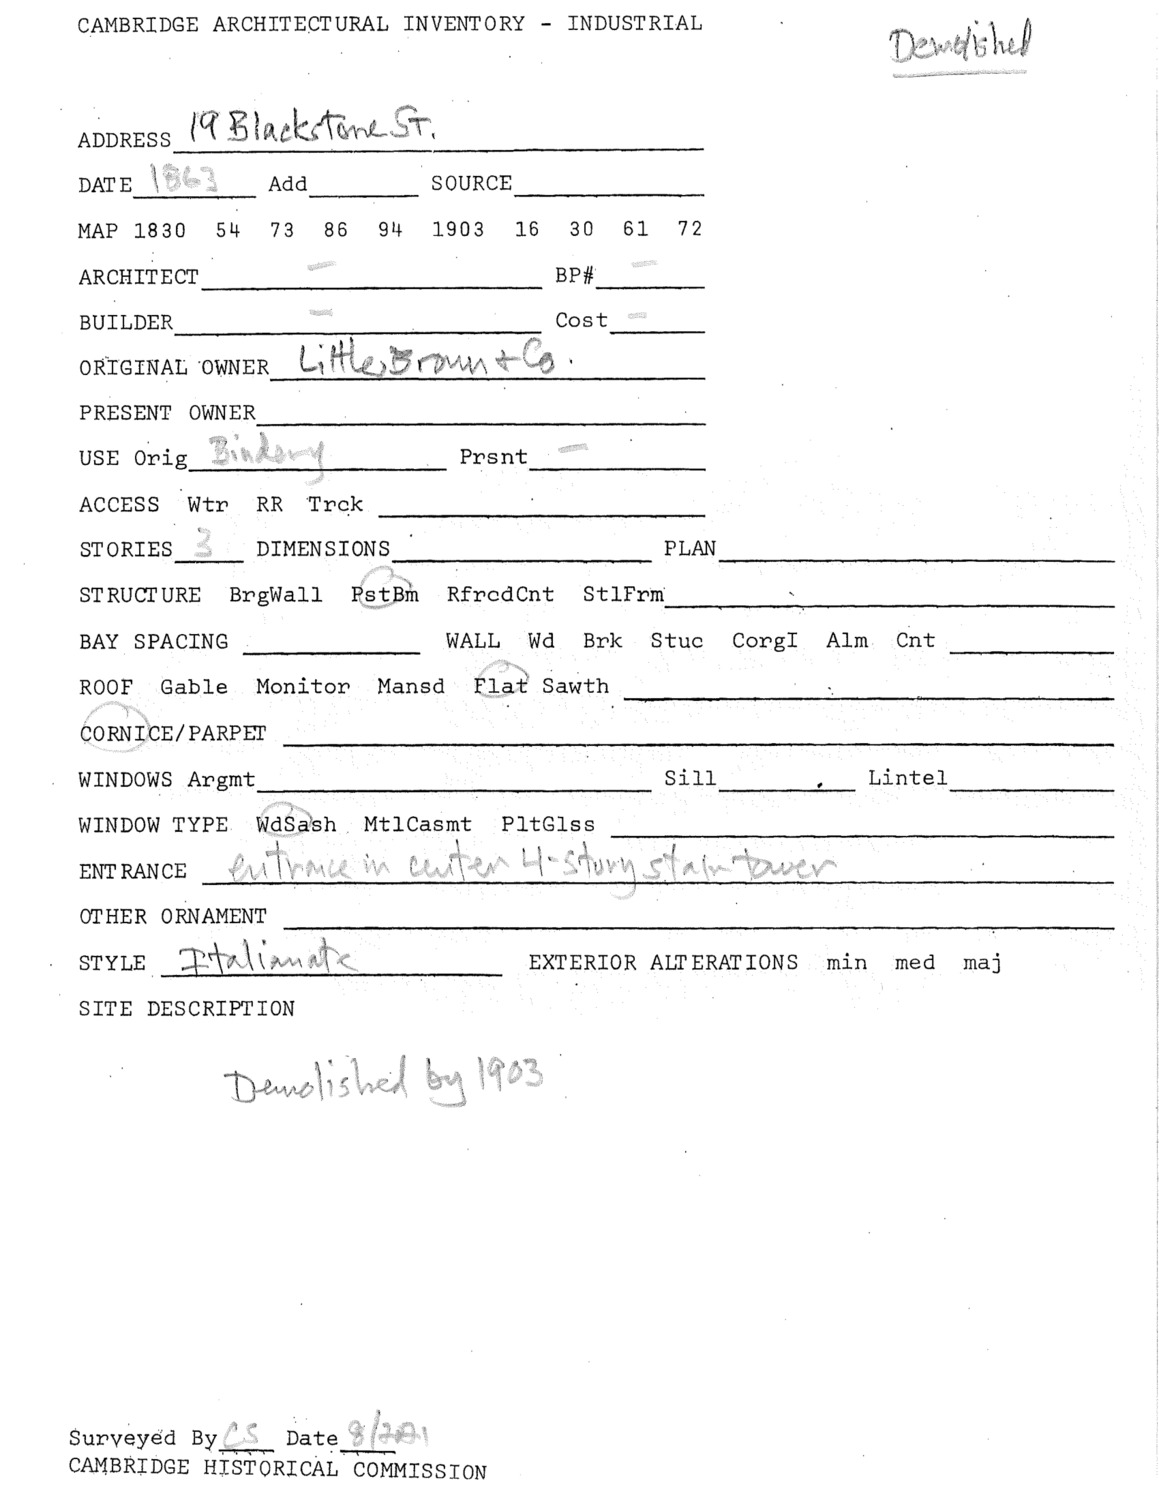 CAMBRIDGE ARCHITECTURAL INVENTORY - INDUSTRIAL
Demolished
ADDRESS 19 Blackstone St.
DATE 1863 Add SOURCE
MAP 1830 54 73 86 94 1903 16 30 61 72
ARCHITECT - BP# -
BUILDER - Cost -
ORIGINAL OWNER Little, Brown + Co.
PRESENT OWNER
USE Orig Bindery Prsnt -
ACCESS Wtr RR Trck
STORIES 3 DIMENSIONS PLAN
STRUCTURE BrgWall PstBm RfrcdCnt StlFrm
BAY SPACING WALL Wd Brk Stuc CorgI Alm Cnt
ROOF Gable Monitor Mansd Flat Sawth
CORNICE/PARPET
WINDOWS Argmt Sill Lintel
WINDOW TYPE WdSash MtlCasmt PltGlss
ENTRANCE entrance in center 4-story stair tower
OTHER ORNAMENT
STYLE Italianate EXTERIOR ALTERATIONS min med maj
SITE DESCRIPTION
Demolished by 1903
Surveyed By CS Date 8/2021
CAMBRIDGE HISTORICAL COMMISSION